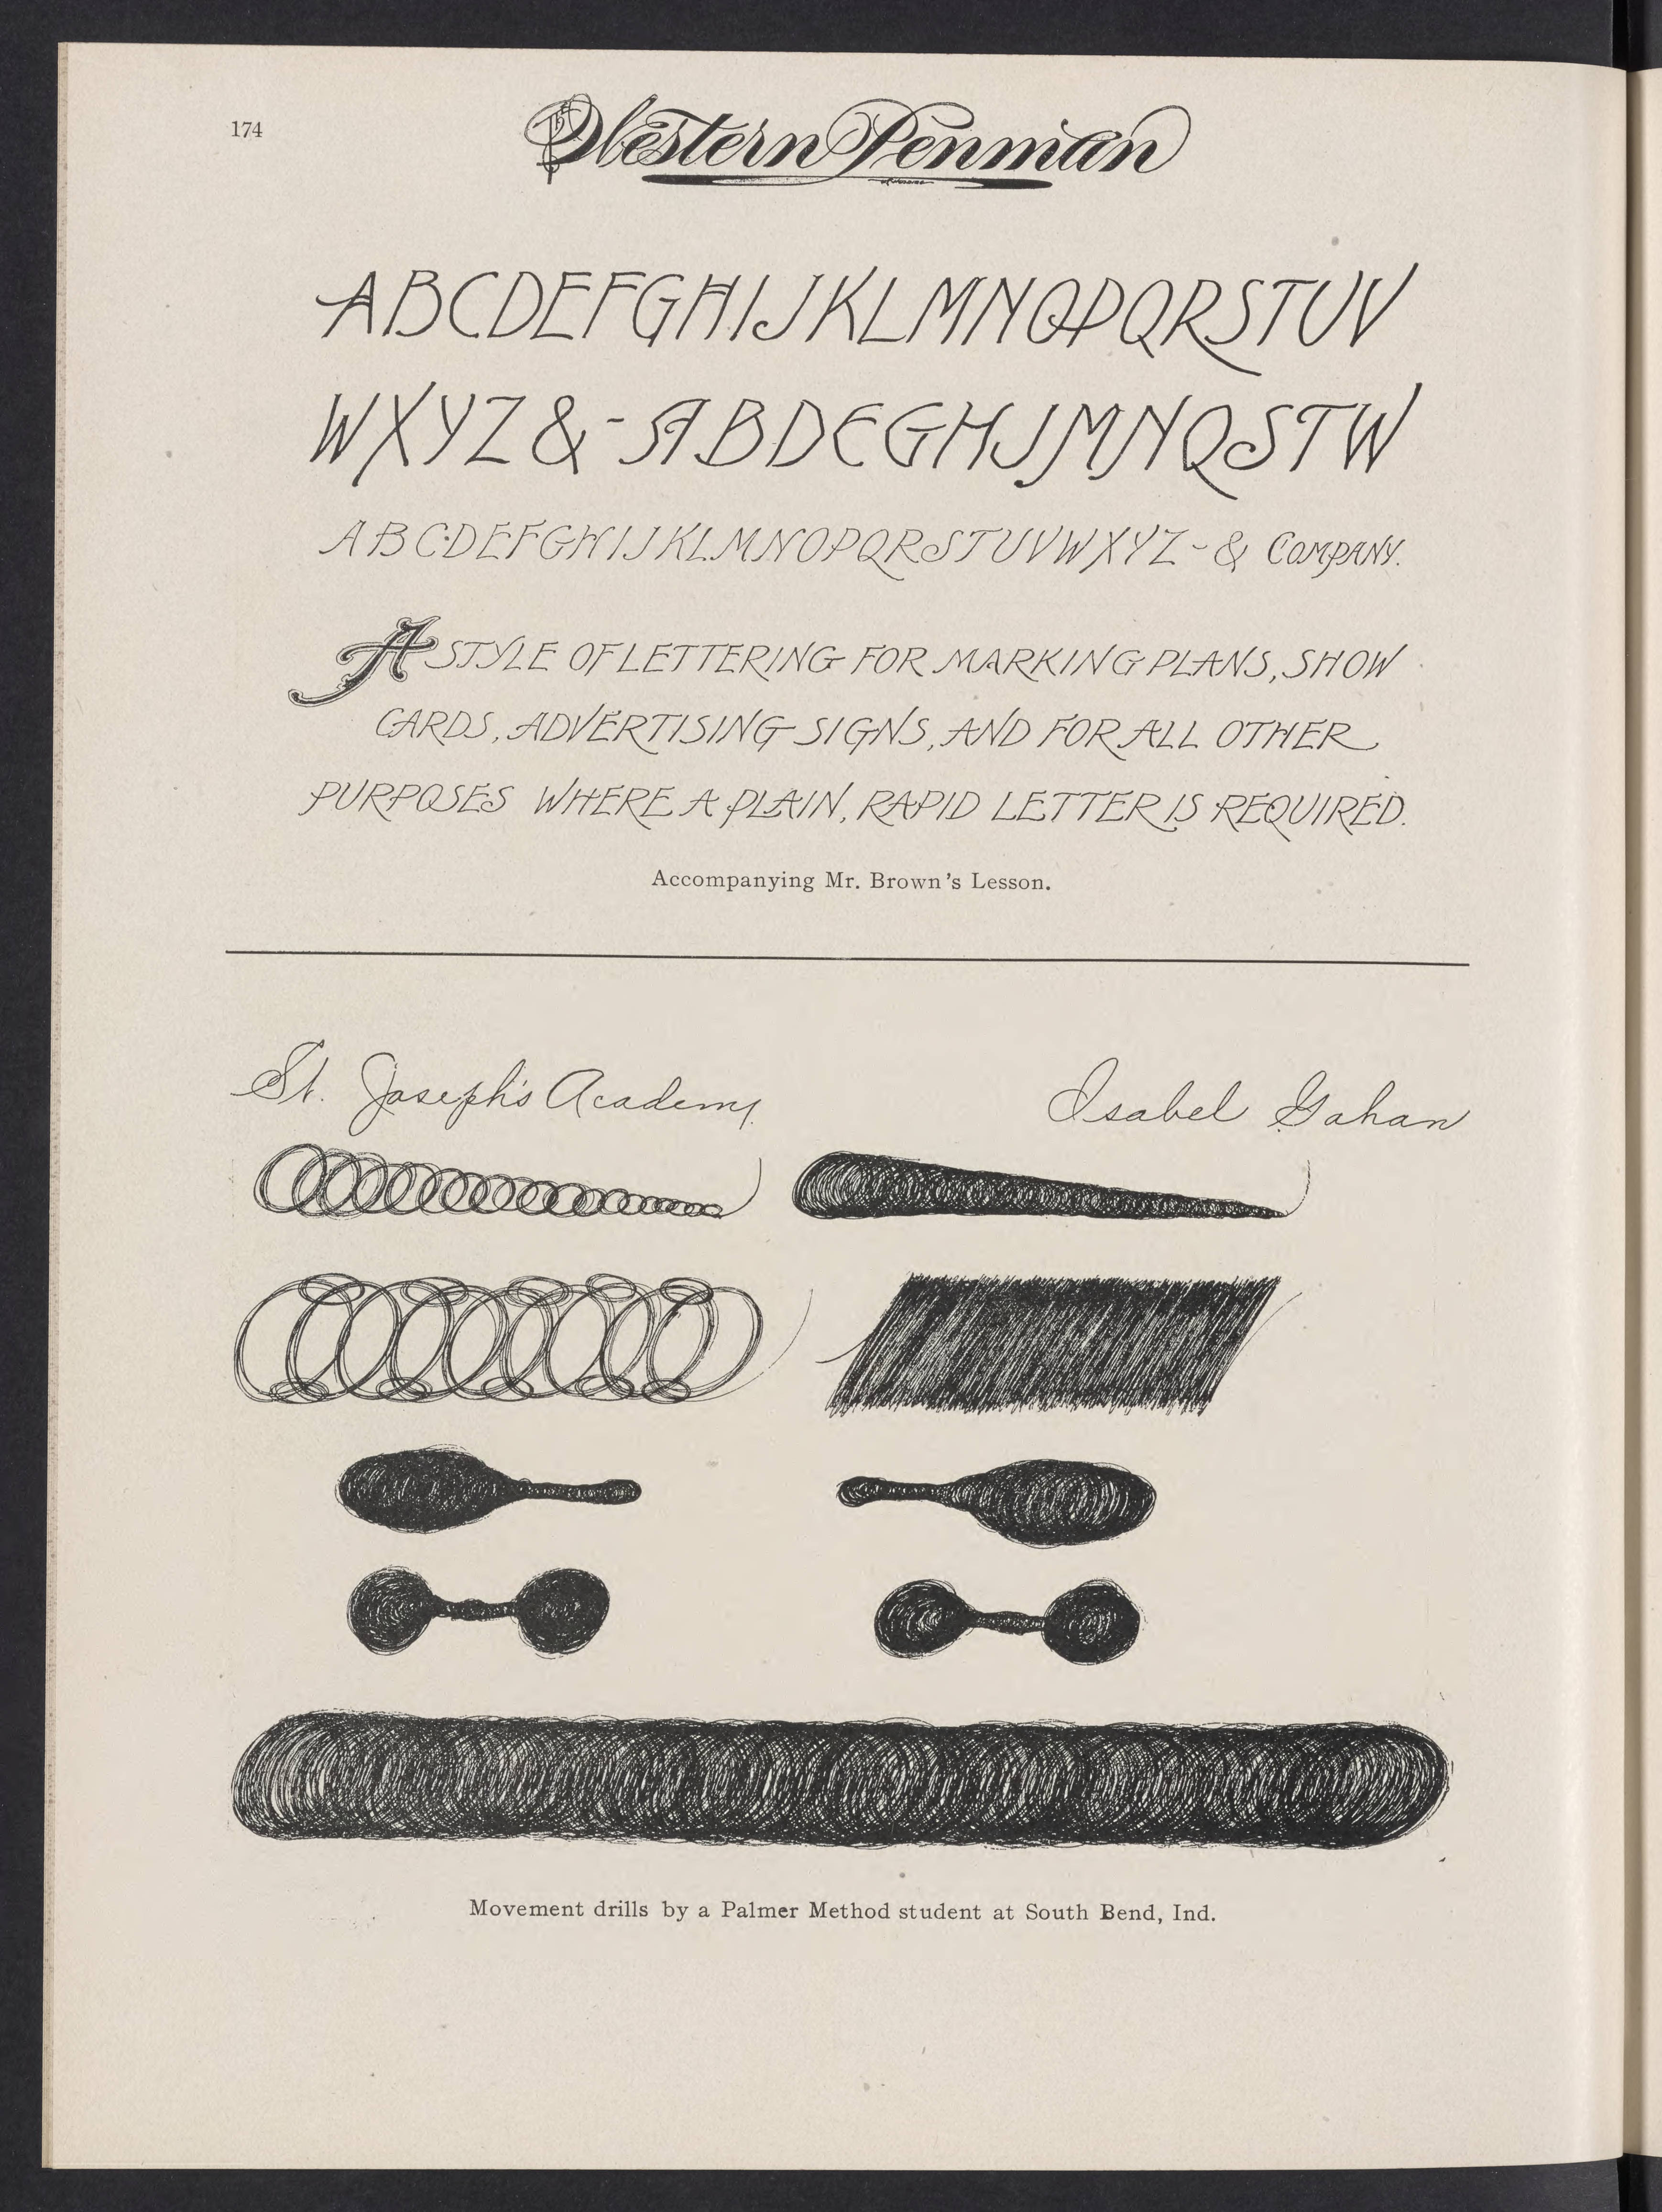 174
The Western Penman
ABCDEFGHIJKLMNOPQRSTUV
WXYZ&-ABDEGHJMNQSTW
ABCDEFGHIJKLMNOPQRSTUVWXYZ-& COMPANY.
A STYLE OF LETTERING FOR MARKING PLANS, SHOW
CARDS, ADVERTISING SIGNS, AND FOR ALL OTHER
PURPOSES WHERE A PLAIN, RAPID LETTER IS REQUIRED.
Accompanying Mr. Brown's Lesson.
St. Joseph's Academy. Isabel Gahan
Movement drills by a Palmer Method student at South Bend, Ind.